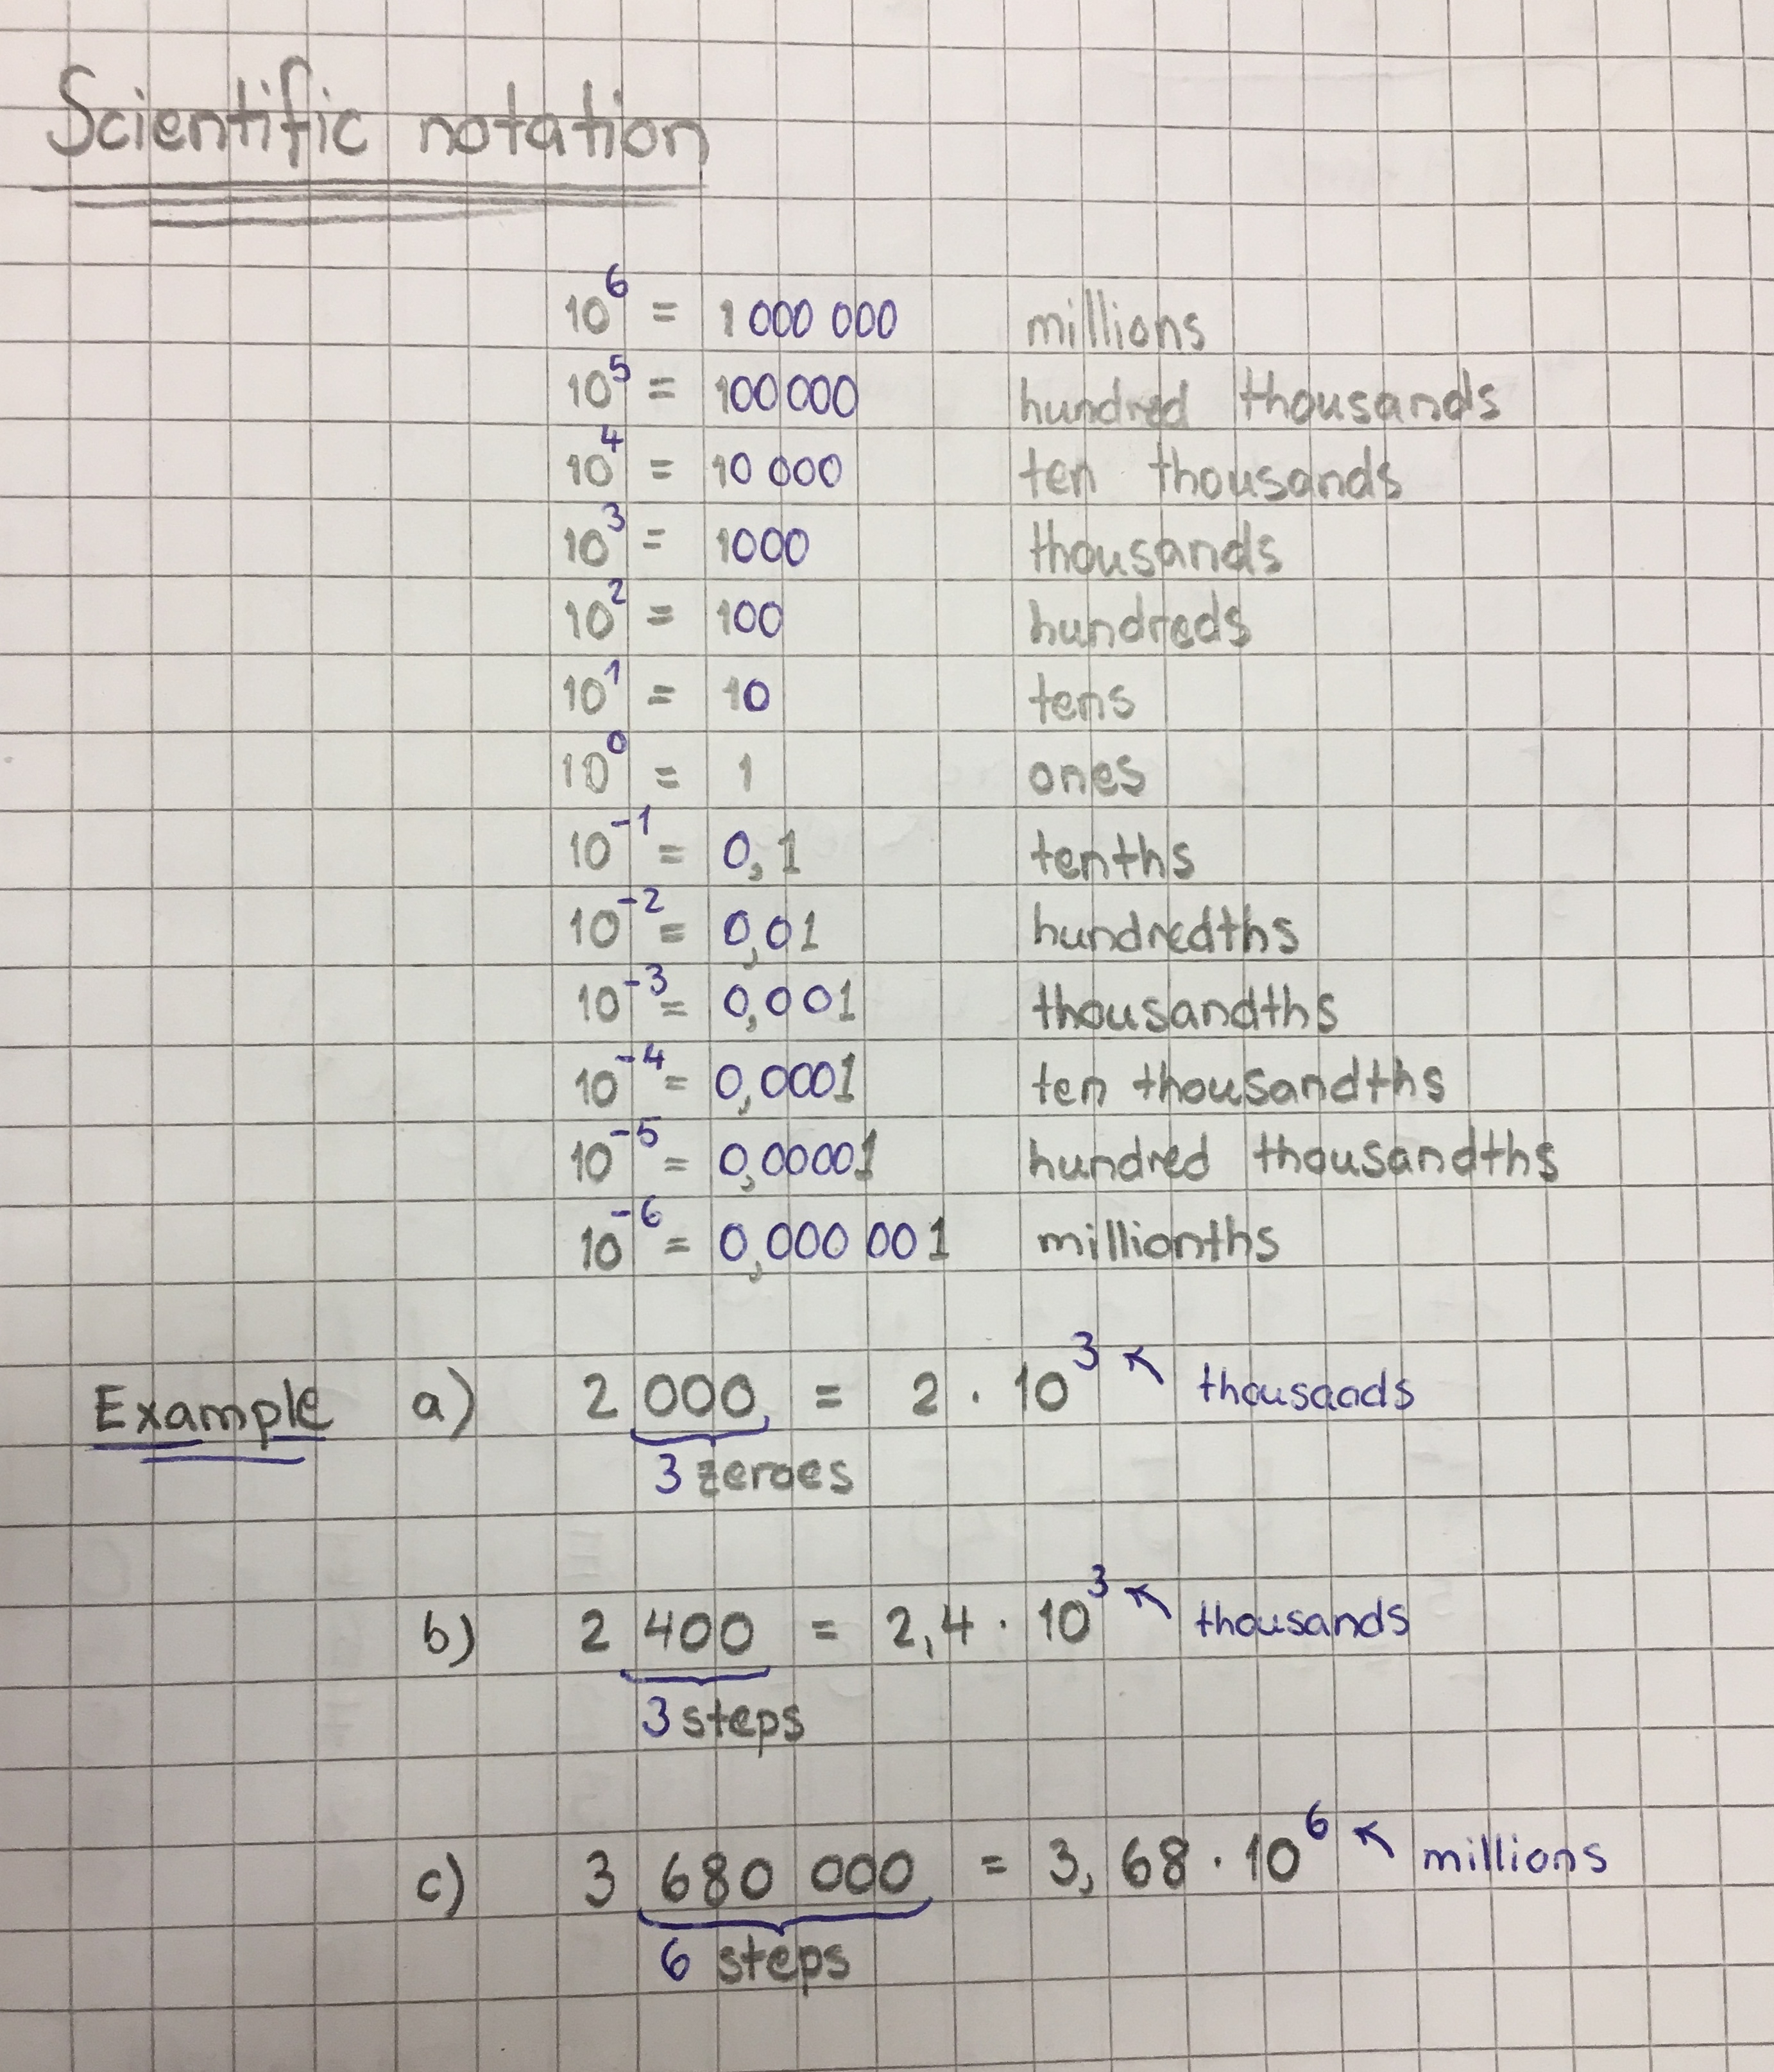 Scientific notation
10⁶ = 1 000 000 millions
10⁵ = 100 000 hundred thousands
10⁴ = 10 000 ten thousands
10³ = 1000 thousands
10² = 100 hundreds
10¹ = 10 tens
10⁰ = 1 ones
10⁻¹ = 0,1 tenths
10⁻² = 0,01 hundredths
10⁻³ = 0,001 thousandths
10⁻⁴ = 0,0001 ten thousandths
10⁻⁵ = 0,00001 hundred thousandths
10⁻⁶ = 0,000 001 millionths
Example a) 2 000 = 2 · 10³ ↖ thousaads
3 zeroes
b) 2 400 = 2,4 · 10³ ↖ thousands
3 steps
c) 3 680 000 = 3,68 · 10⁶ ↖ millions
6 steps